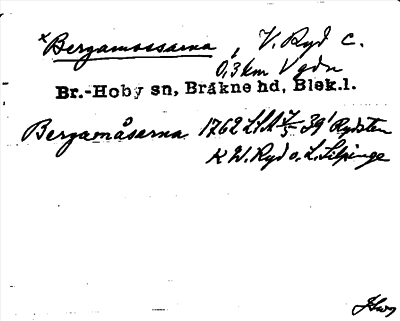 ×Bergamossarna, V. Ryd c.
0,3 km V gdn
Br.-Hoby sn, Bräkne hd, Blek.l.
Bergamåsarna 1762 LSA 39¹ Rydsten
K W. Ryd o. L. Silpinge